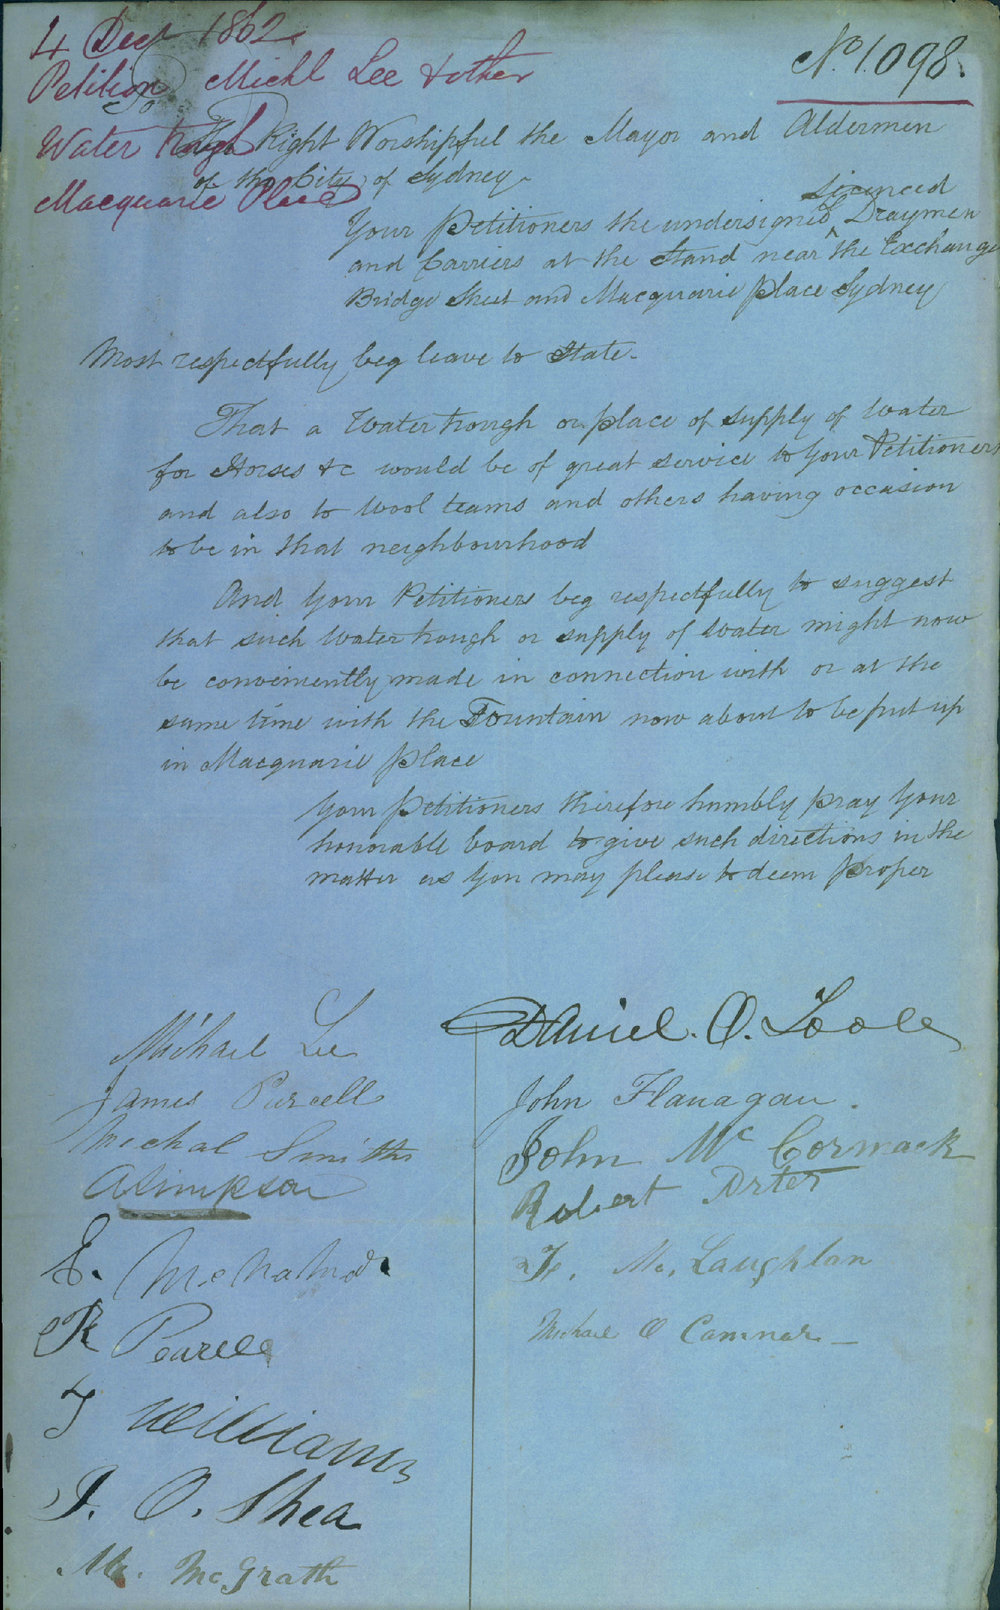 4 Decr 1862
No. 1098.
Petition Michl Lee & other
Water trough
Macquarie Place
To
The Right Worshipful the Mayor and Aldermen
of the City of Sydney.
licenced
Your Petitioners the undersigned ^ Draymen
and Carriers at the Stand near the Exchange
Bridge Street and Macquarie place Sydney
Most respectfully beg leave to State.
That a Water trough or place of supply of Water
for Horses &c would be of great service to Your Petitioners
and also to Wool teams and others having occasion
to be in that neighbourhood
And Your Petitioners beg respectfully to suggest
that such Water trough or supply of Water might now
be conveniently made in connection with or at the
same time with the Fountain now about to be put up
in Macquarie place
Your Petitioners therefore humbly pray Your
honorable board to give such directions in the
matter as You may please to deem proper
Michael Lee
James Purcell
Mechal Smith
A Simpson
E. McNamd.
R Pearce
T Williams
J. O. Shea
McGrath
Daniel. O. Toole
John Flanagan.
John McCormack
Robert Arter
Mc. Laughlan
Michael O Connar